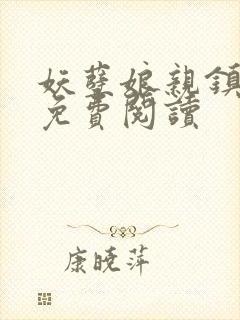 妖孽娘親鎮
免費閱讀
康曉萍